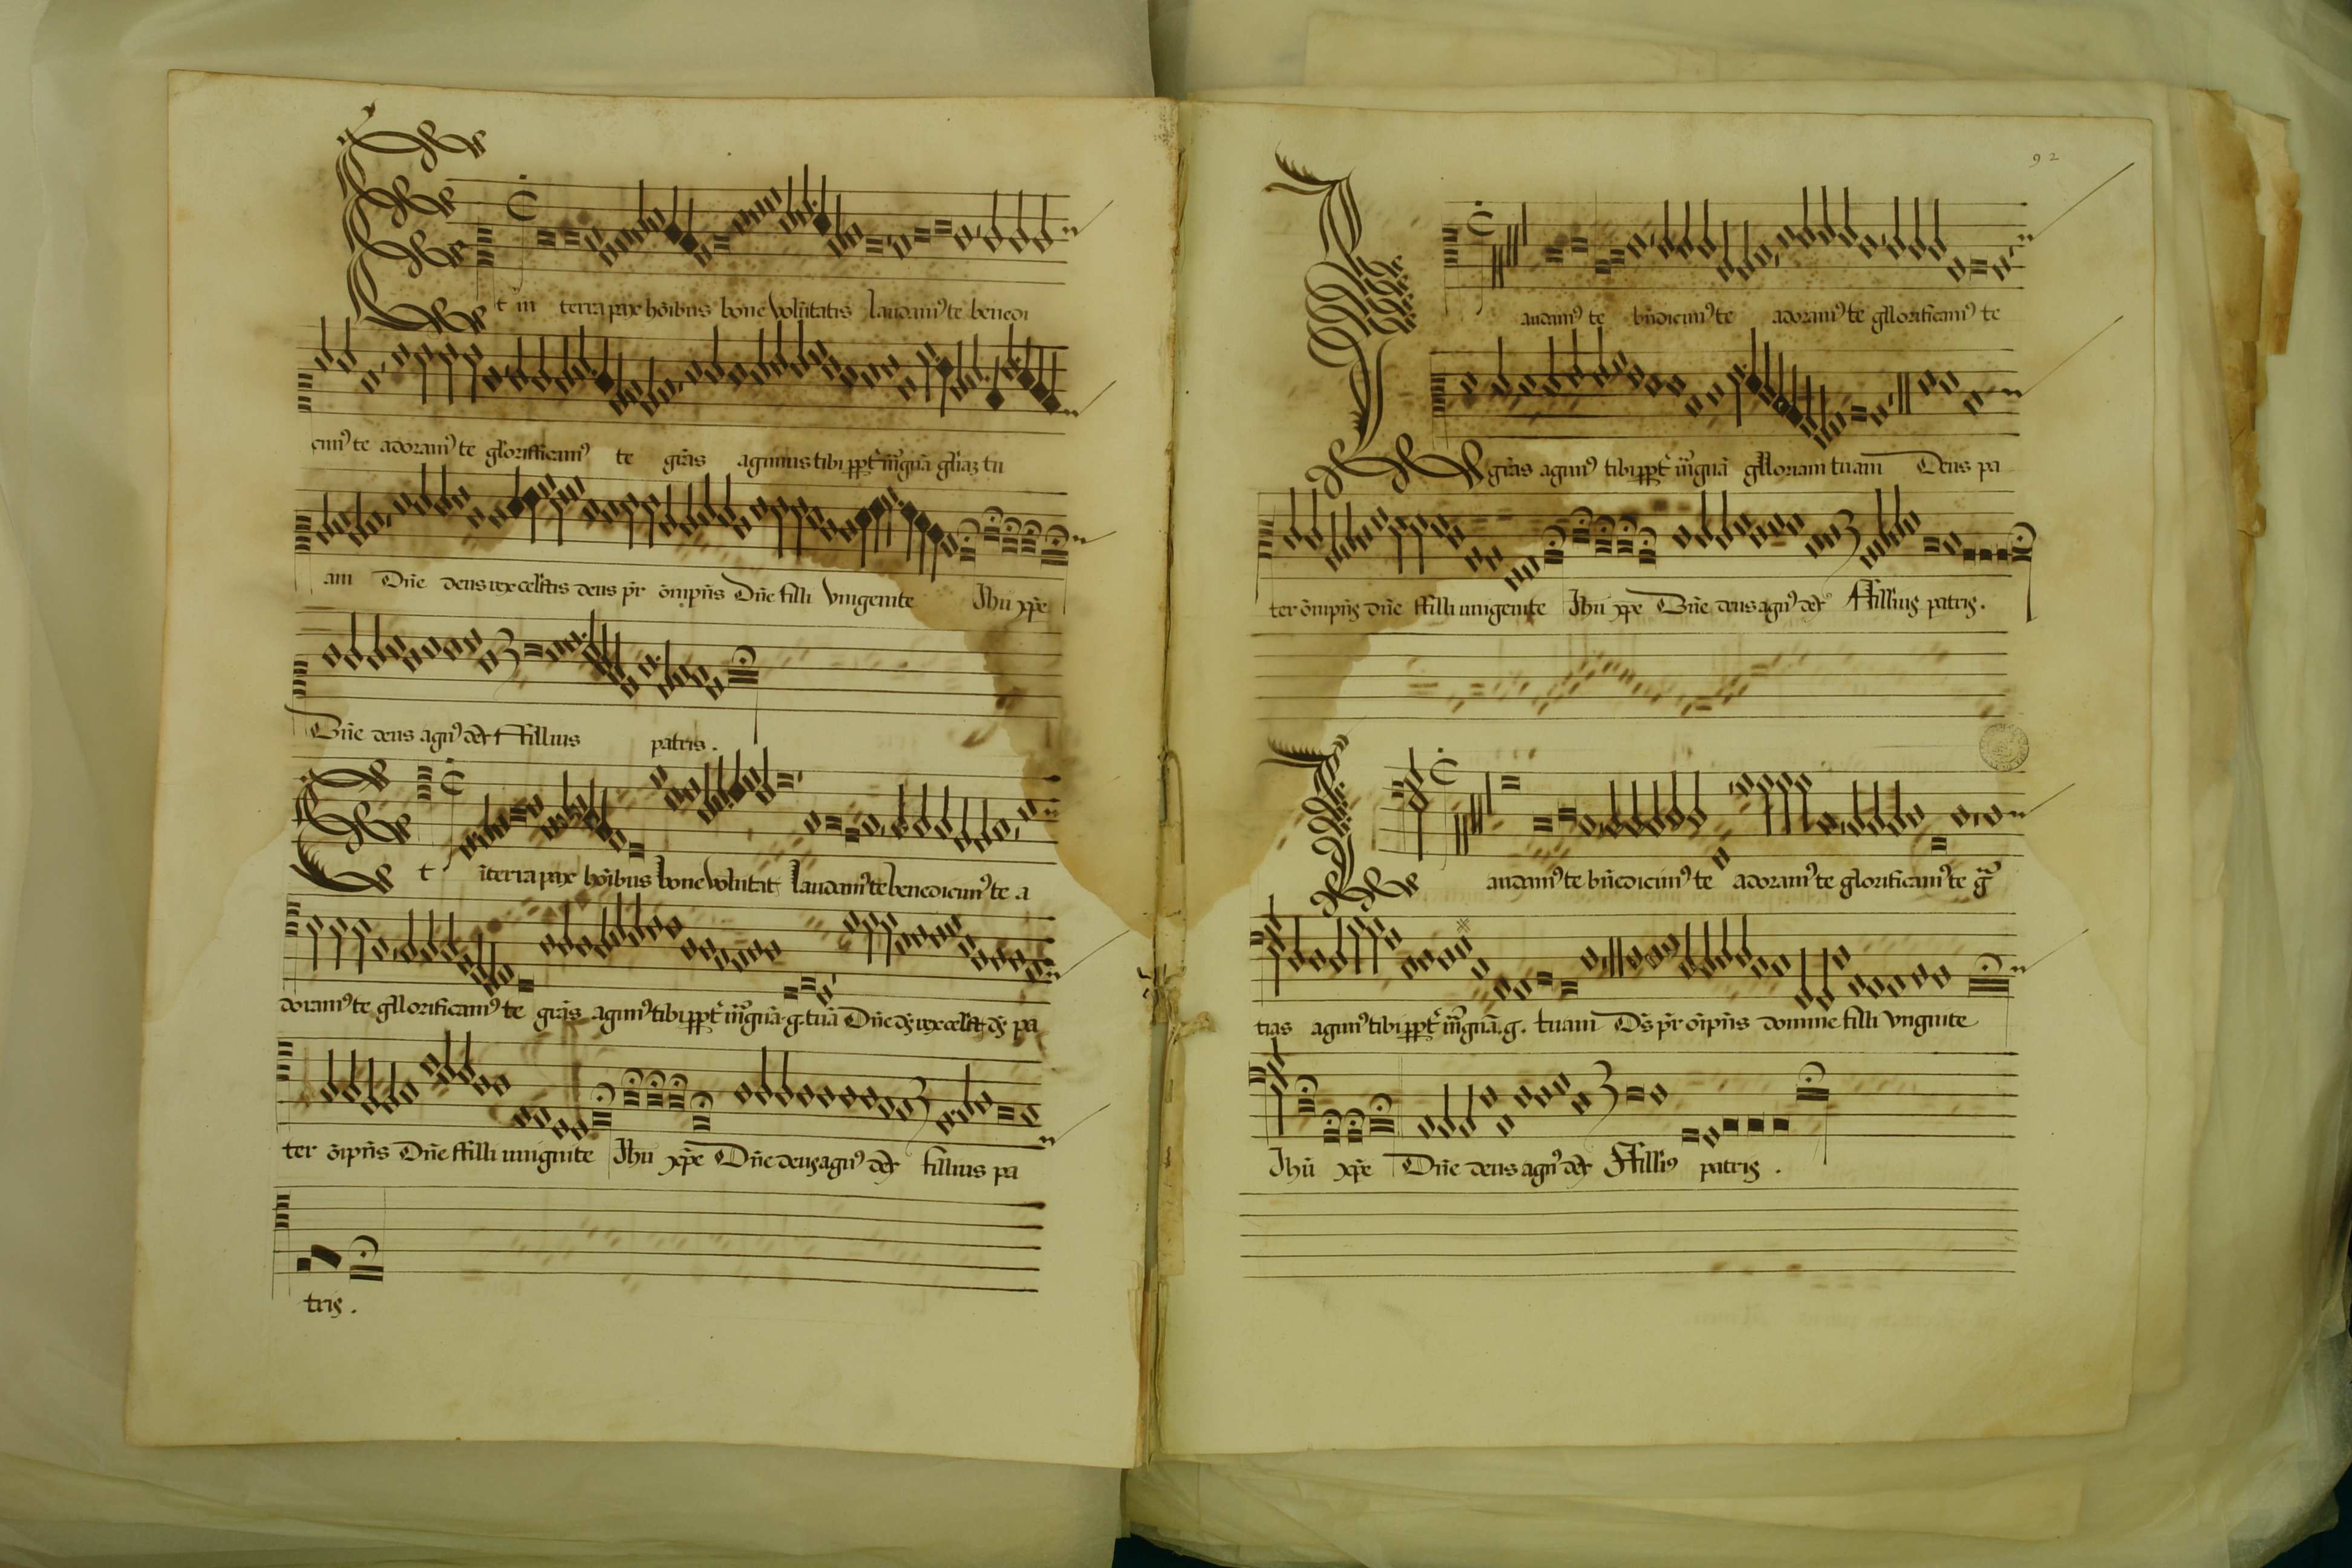 Et in terra pax hōibus bone volūtatis laudamꝰ te benedi
cimꝰ te adoramꝰ te glorifficamꝰ te grās agimus tibi ppt̄ mꝰgnā gliaz tu
am Dn̄e deus rex celestis deus pr̄ om̄ipn̄s Dn̄e filli Vnigenite Jhū xp̄e
Dn̄e deus agnꝰ dei Ffillius patris.
Et ī terra pax hōibus bone volūtat laudamꝰ te benedicimꝰ te a
doramꝰ te gllorificamꝰ te grās agimꝰ tibi ppt̄ mꝰgnā g. tuā Dn̄e dꝰ rex celest dꝰ pa
ter ōipn̄s Dn̄e ffilli unignite Jhū xp̄e Dn̄e deus agnꝰ dei fillius pa
tris.
92
Laudamꝰ te bn̄dicimꝰ te adoramꝰ te gllorificamꝰ te
grās agimꝰ tibi ppt̄ mꝰgnā glloriam tuam Deus pa
ter ōmipn̄s dn̄e ffilli unigenite Jhū xp̄e Dn̄e deus agnꝰ dei Ffillius patris.
Laudamꝰ te bn̄edicimꝰ te adoramꝰ te glorificamꝰ te gr̄a
tias agimꝰ tibi ppt̄ mꝰgnā .g. tuam Ds̄ pr̄ ōipn̄s domine filli Vngnite
Jhū xp̄e Dn̄e deus agnꝰ dei Ffilliꝰ patris.